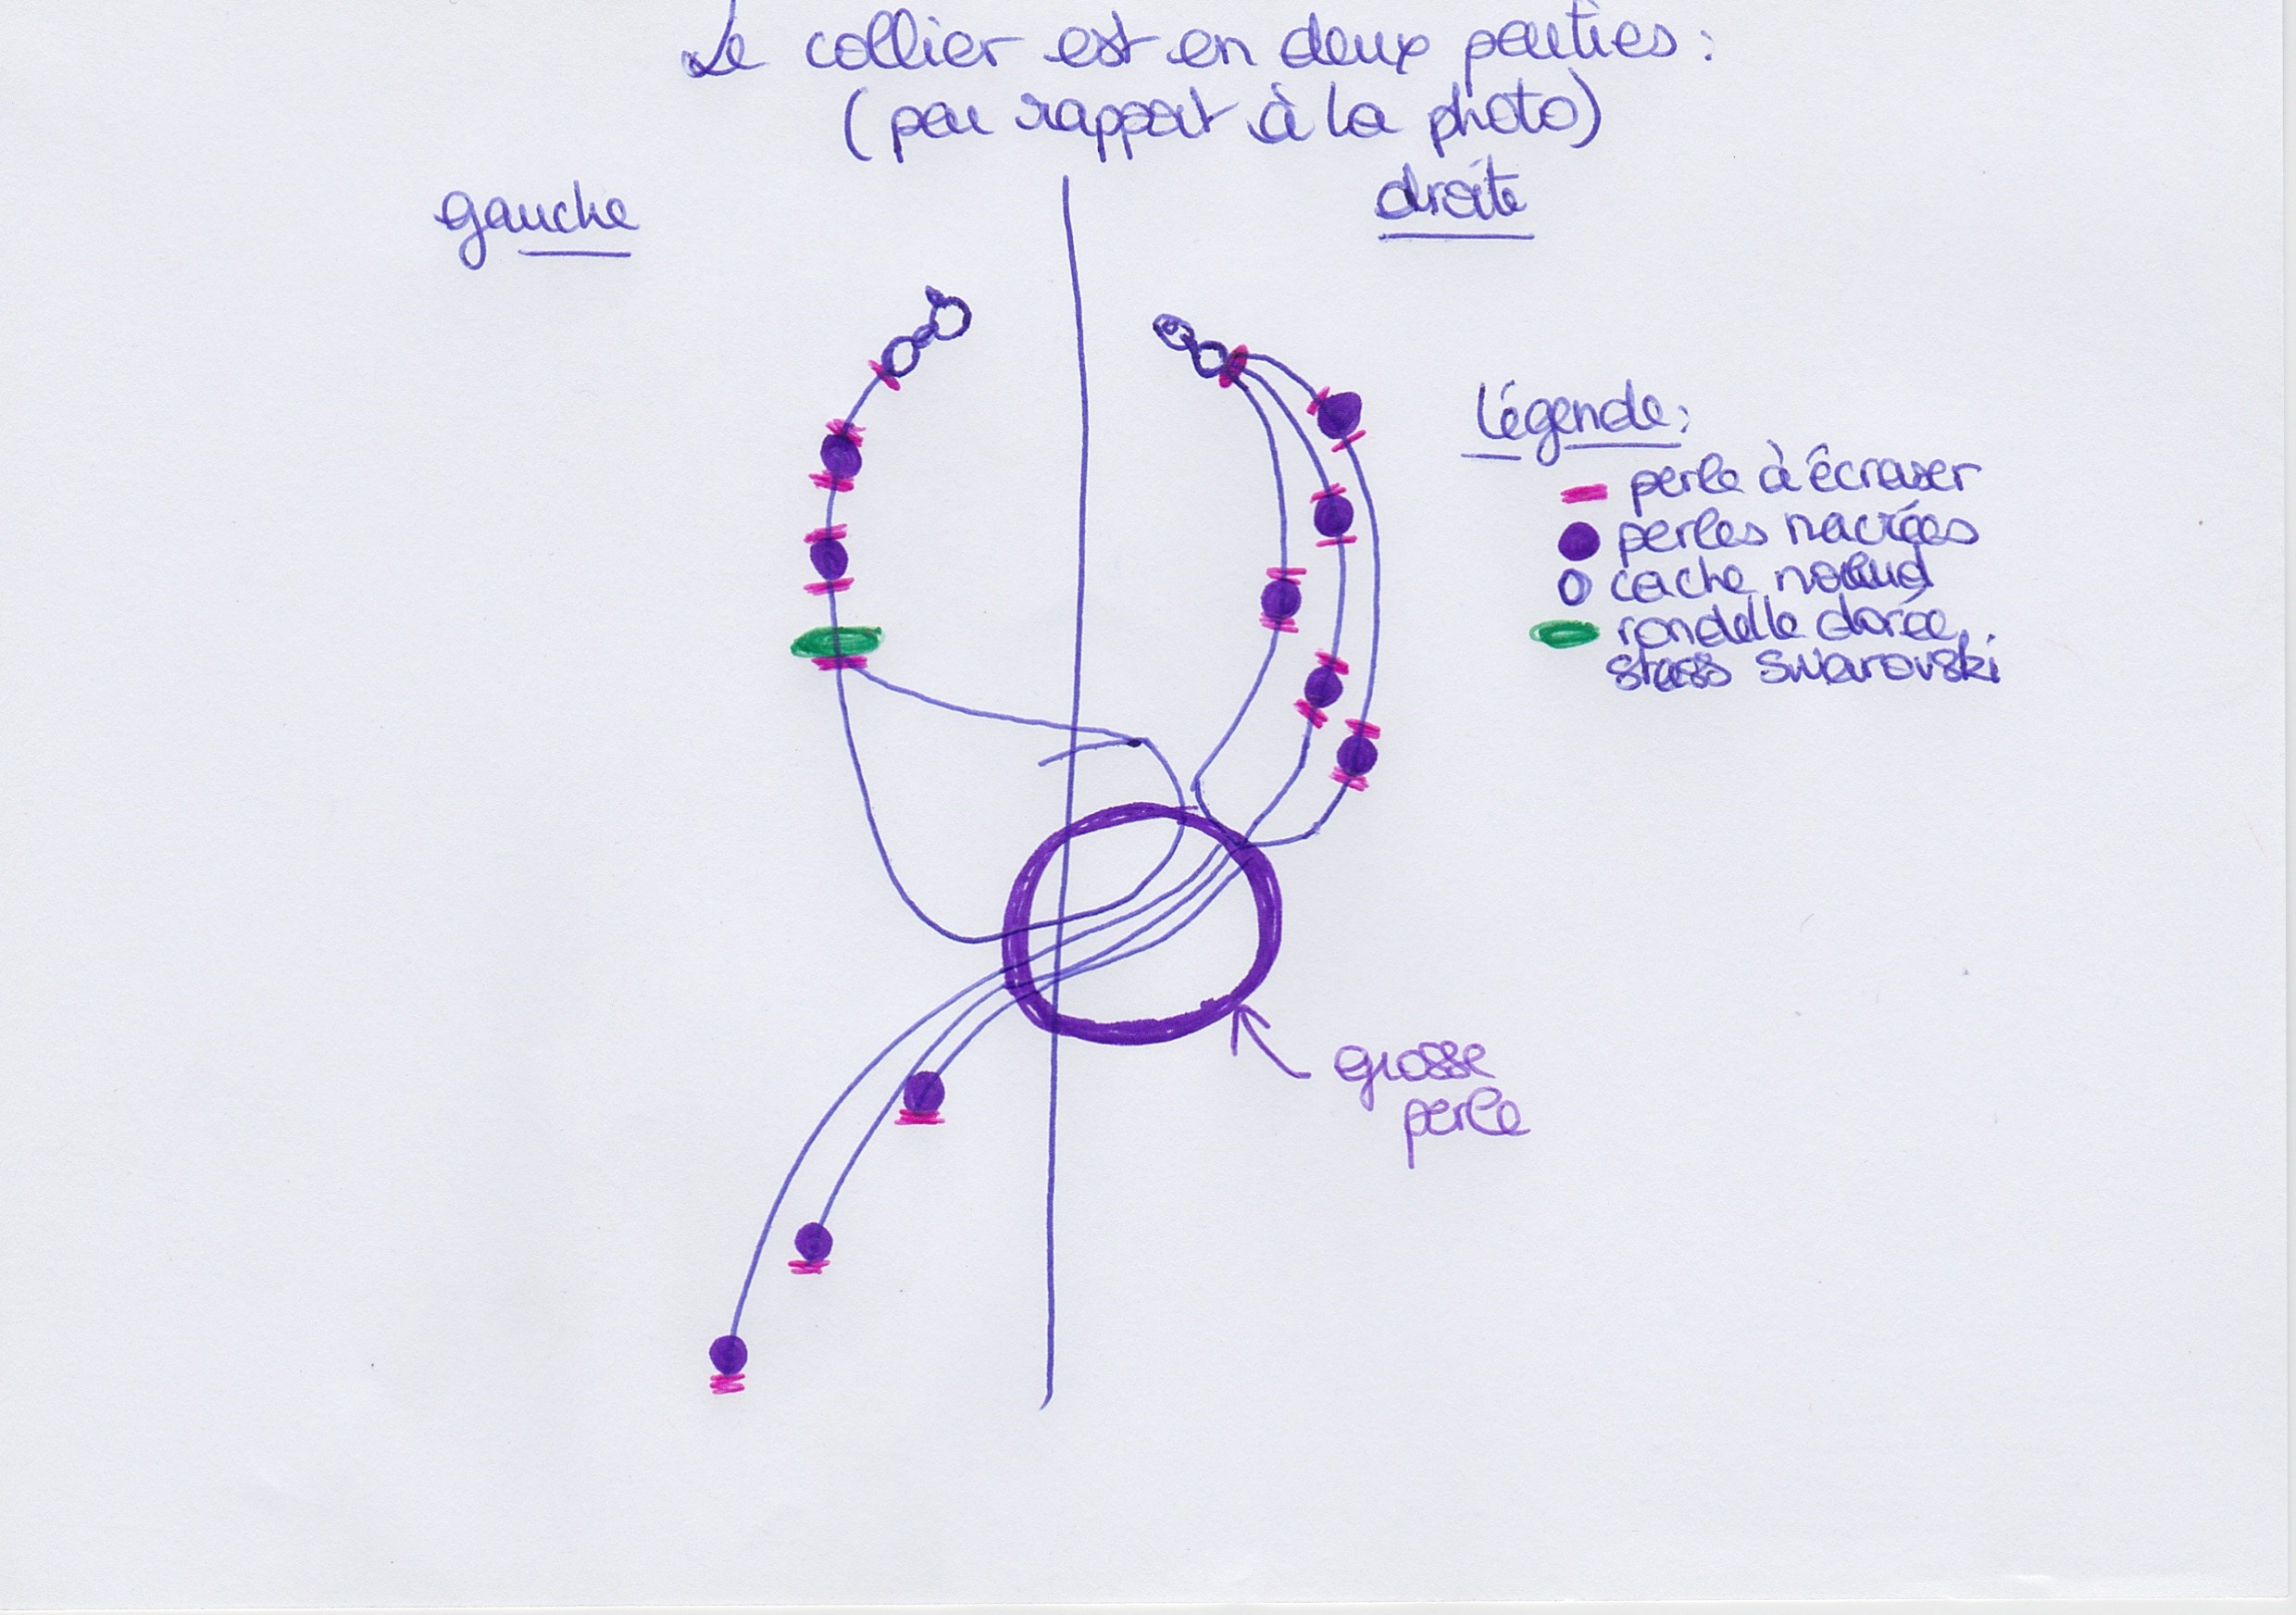 Le collier est en deux parties :
(par rapport à la photo)
gauche
droite
Légende :
perle à écraser
perles nacrées
cache noeud
rondelle dorée,
strass swarovski
grosse
perle